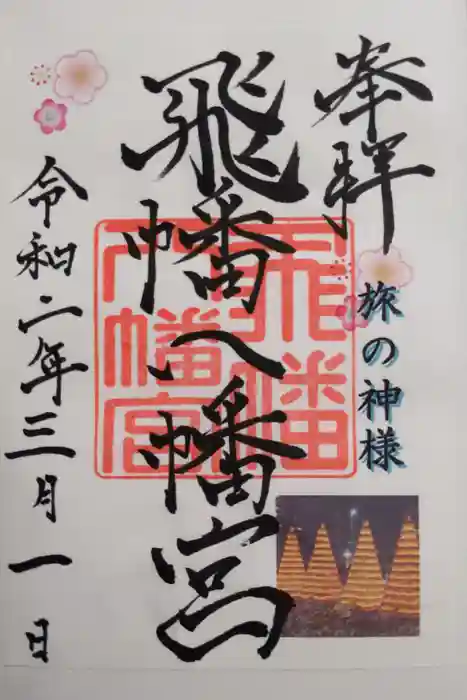 奉拝
旅の神様
飛幡八幡宮
飛幡八幡宮
令和二年三月一日